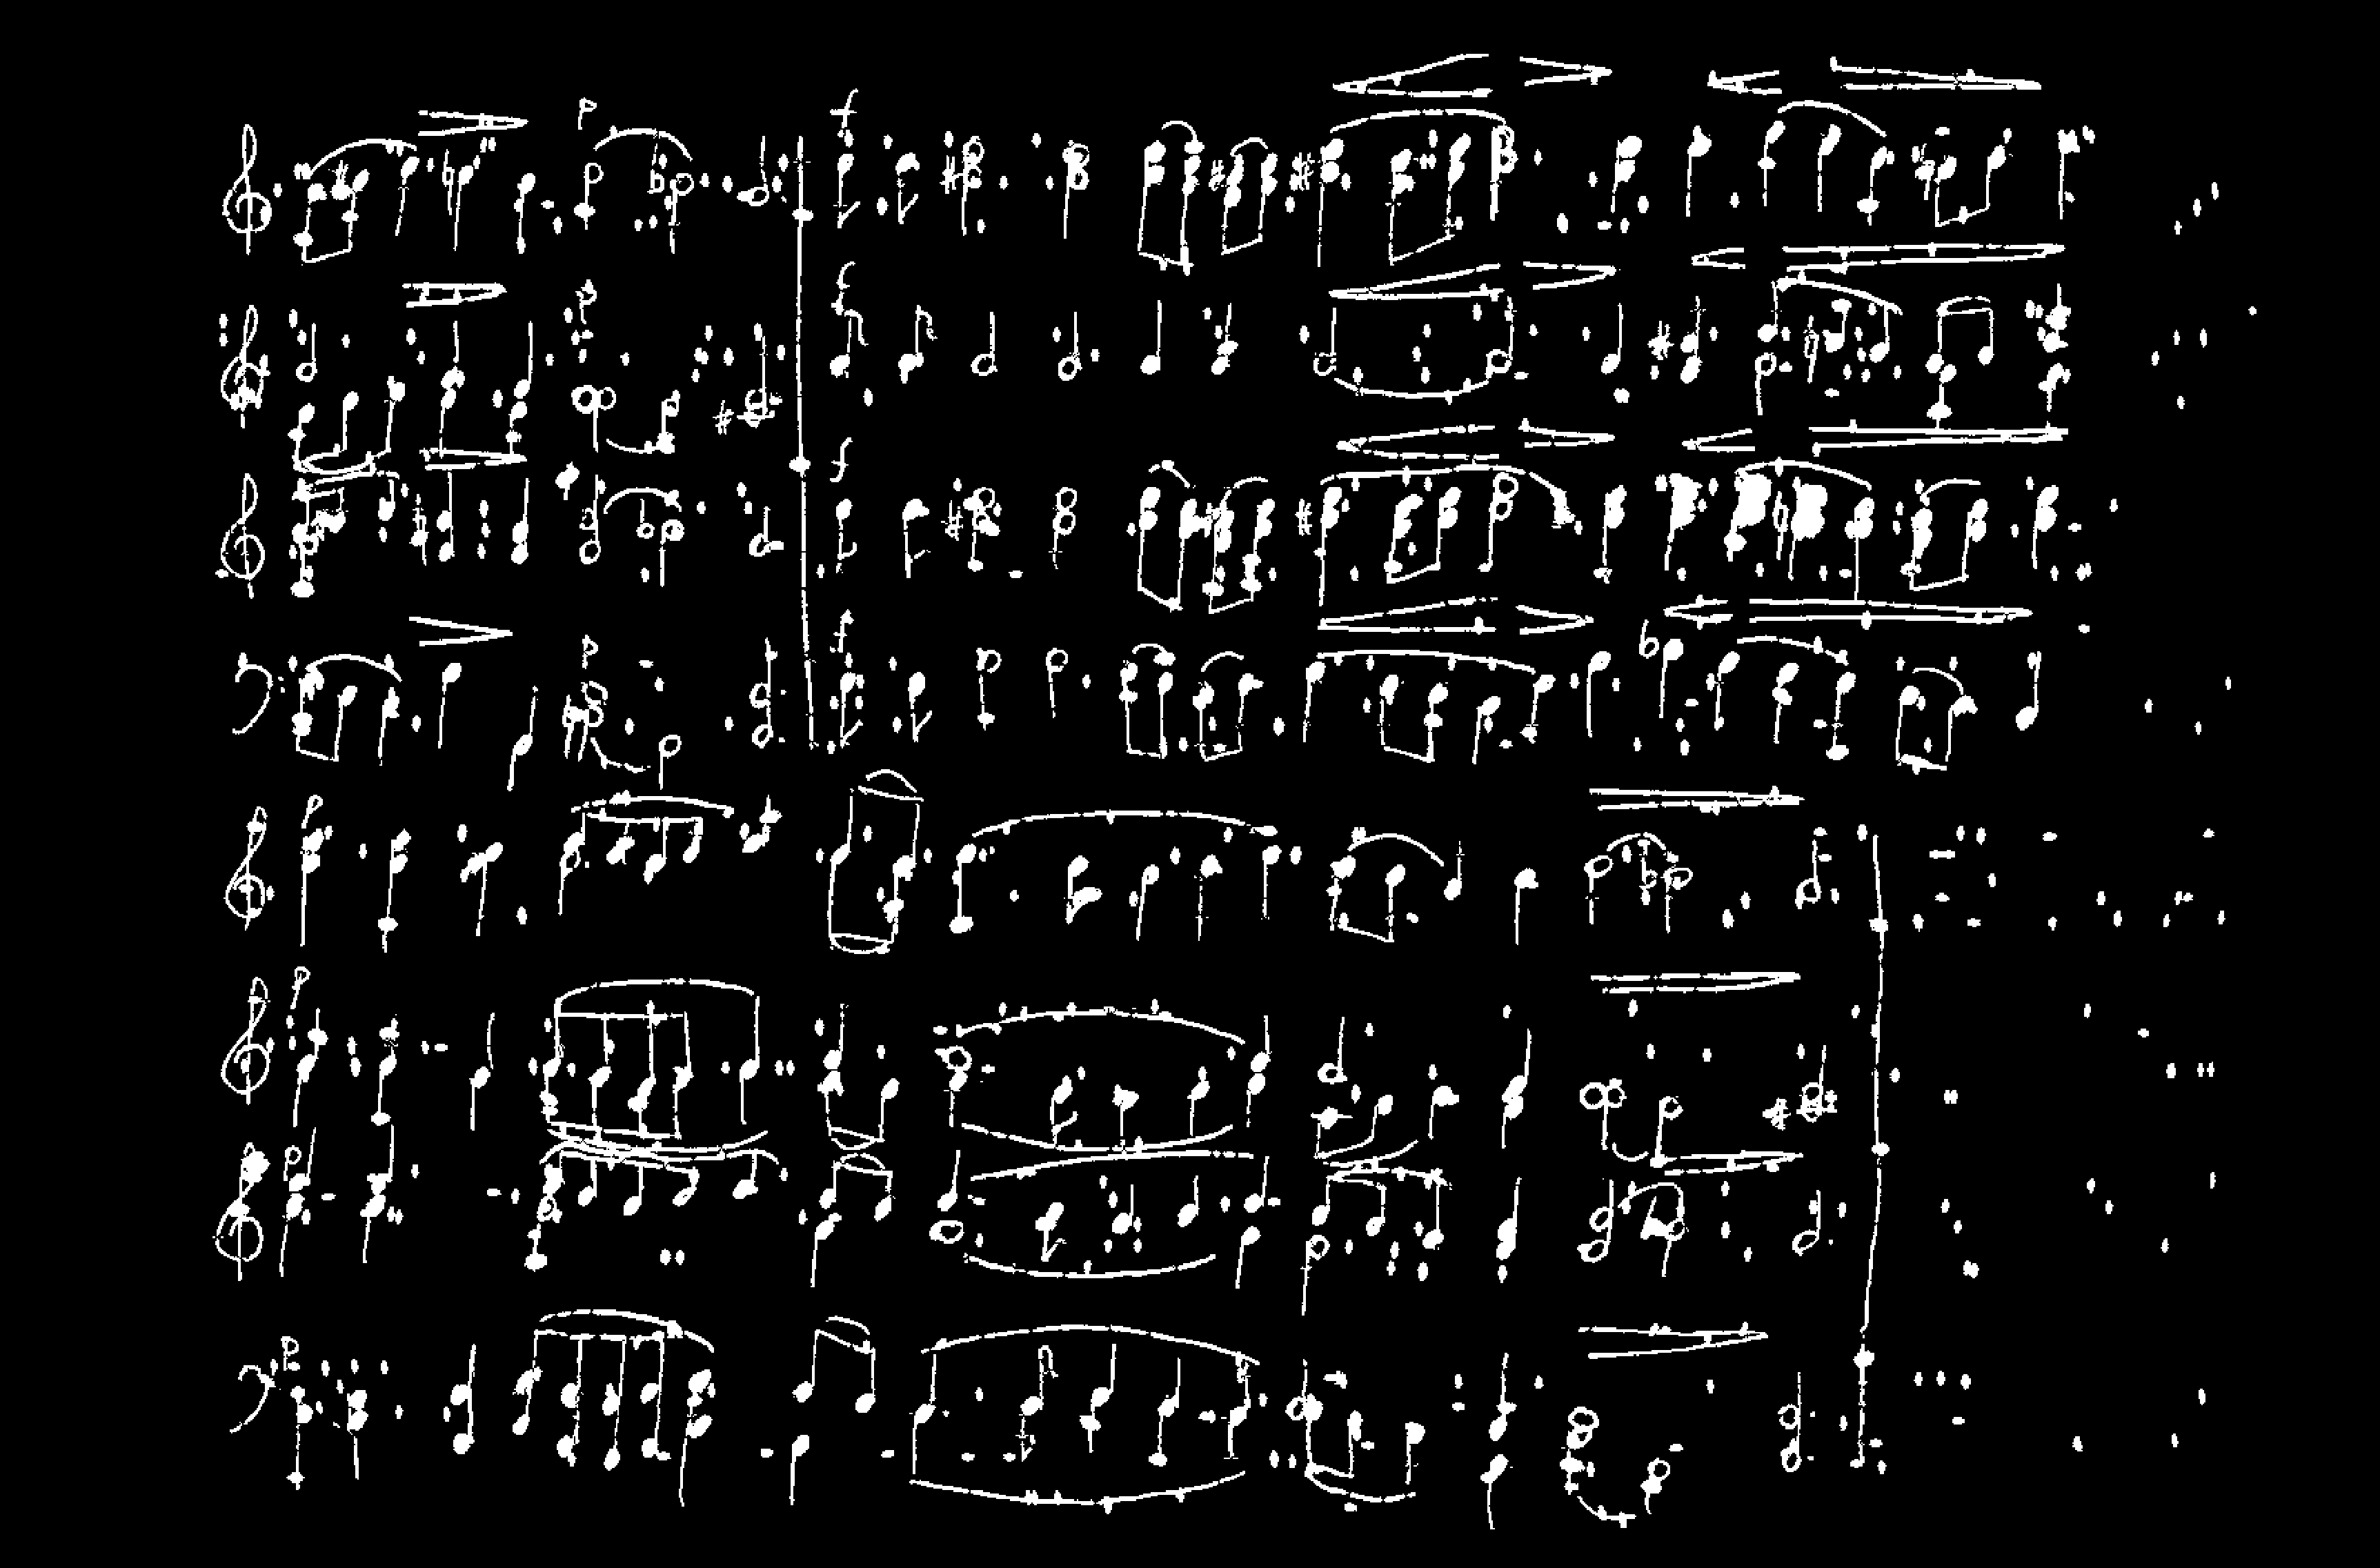 p f
p f
f
p f
p
p
p
p